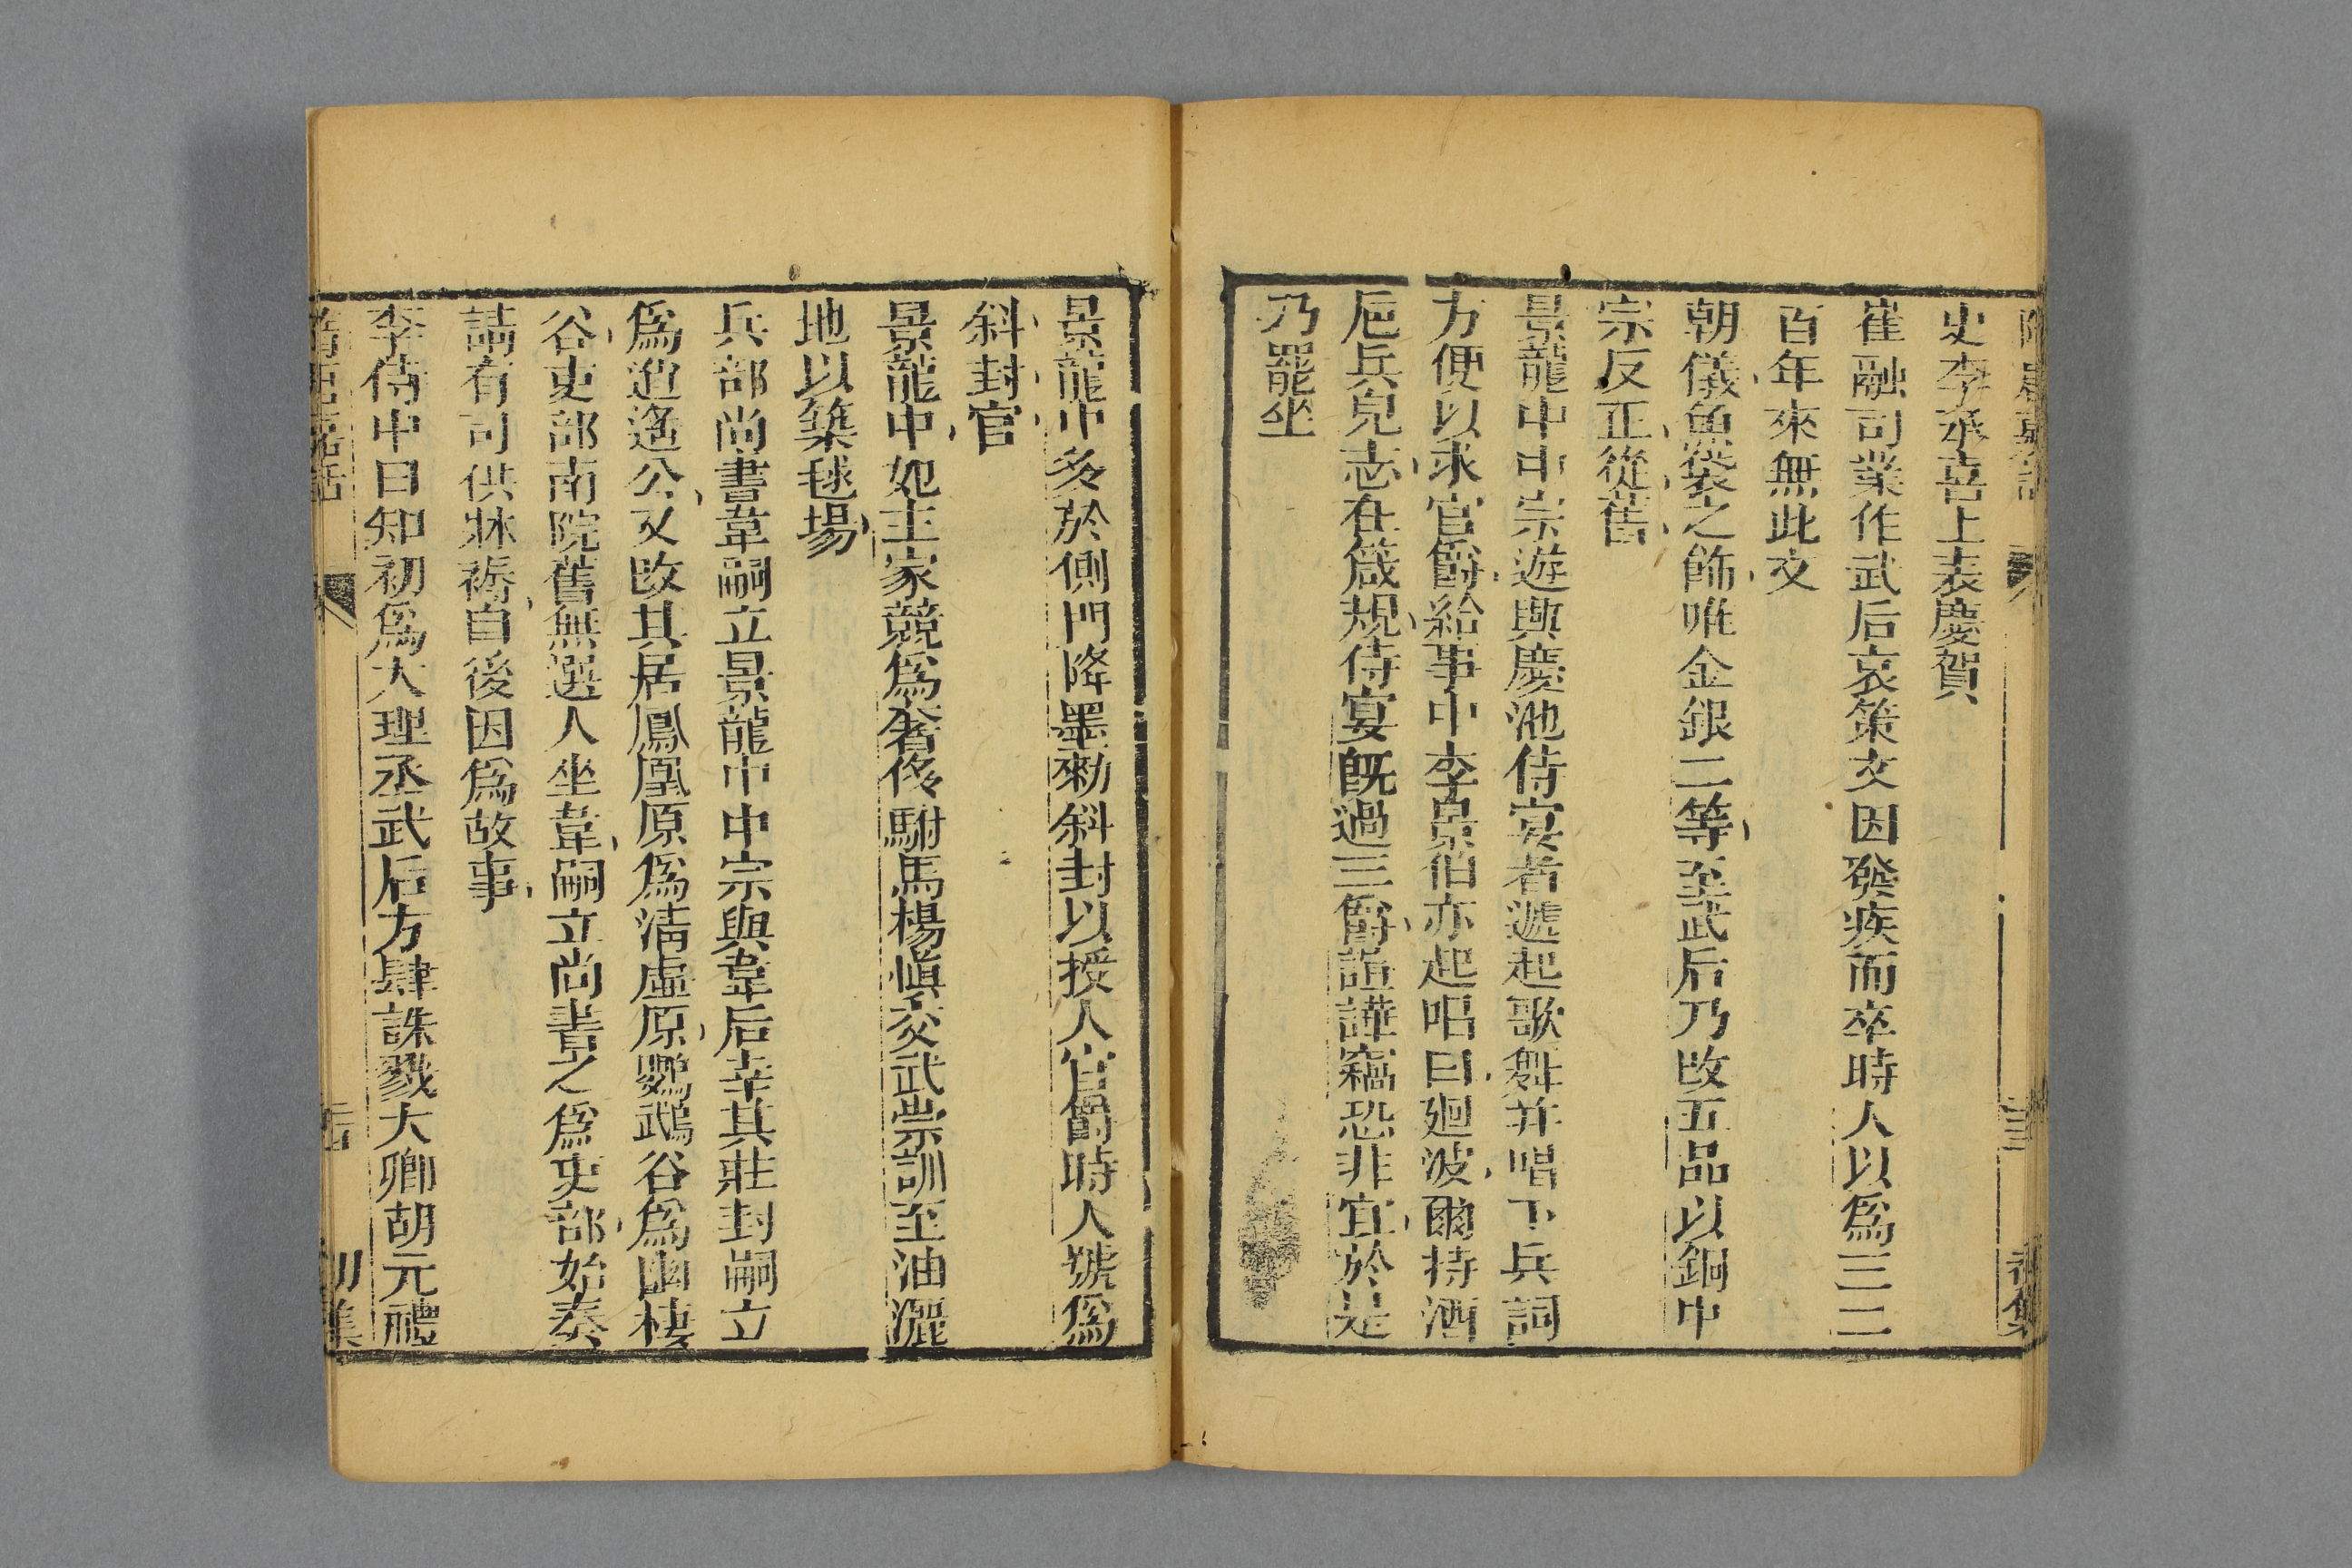 史李承嘉上表慶賀
崔融司業作武后哀策文因發疾而卒時人以爲三二
百年來無此文
朝儀魚袋之飾唯金銀二等至武后乃改五品以銅中
宗反正從舊
景龍中中宗遊興慶池侍宴者遞起歌舞并唱下兵詞
方便以求官爵給事中李景伯亦起唱曰廻波爾持酒
巵兵兒志在箴規侍宴旣過三爵諠譁竊恐非宜於是
乃罷坐
景龍中多於側門降墨勑斜封以授人官爵時人號爲
斜封官
景龍中妃主家競爲奢侈駙馬楊愼交武崇訓至油灑
地以築毬場
兵部尚書韋嗣立景龍中中宗與韋后幸其莊封嗣立
爲逍遙公又改其居鳳凰原爲淸虛原鸚鵡谷爲幽棲
谷吏部南院舊無選人坐韋嗣立尚書之爲吏部始奏
請有司供牀褥自後因爲故事
李侍中曰知初爲大理丞武后方肆誅戮大卿胡元禮
隋唐嘉話